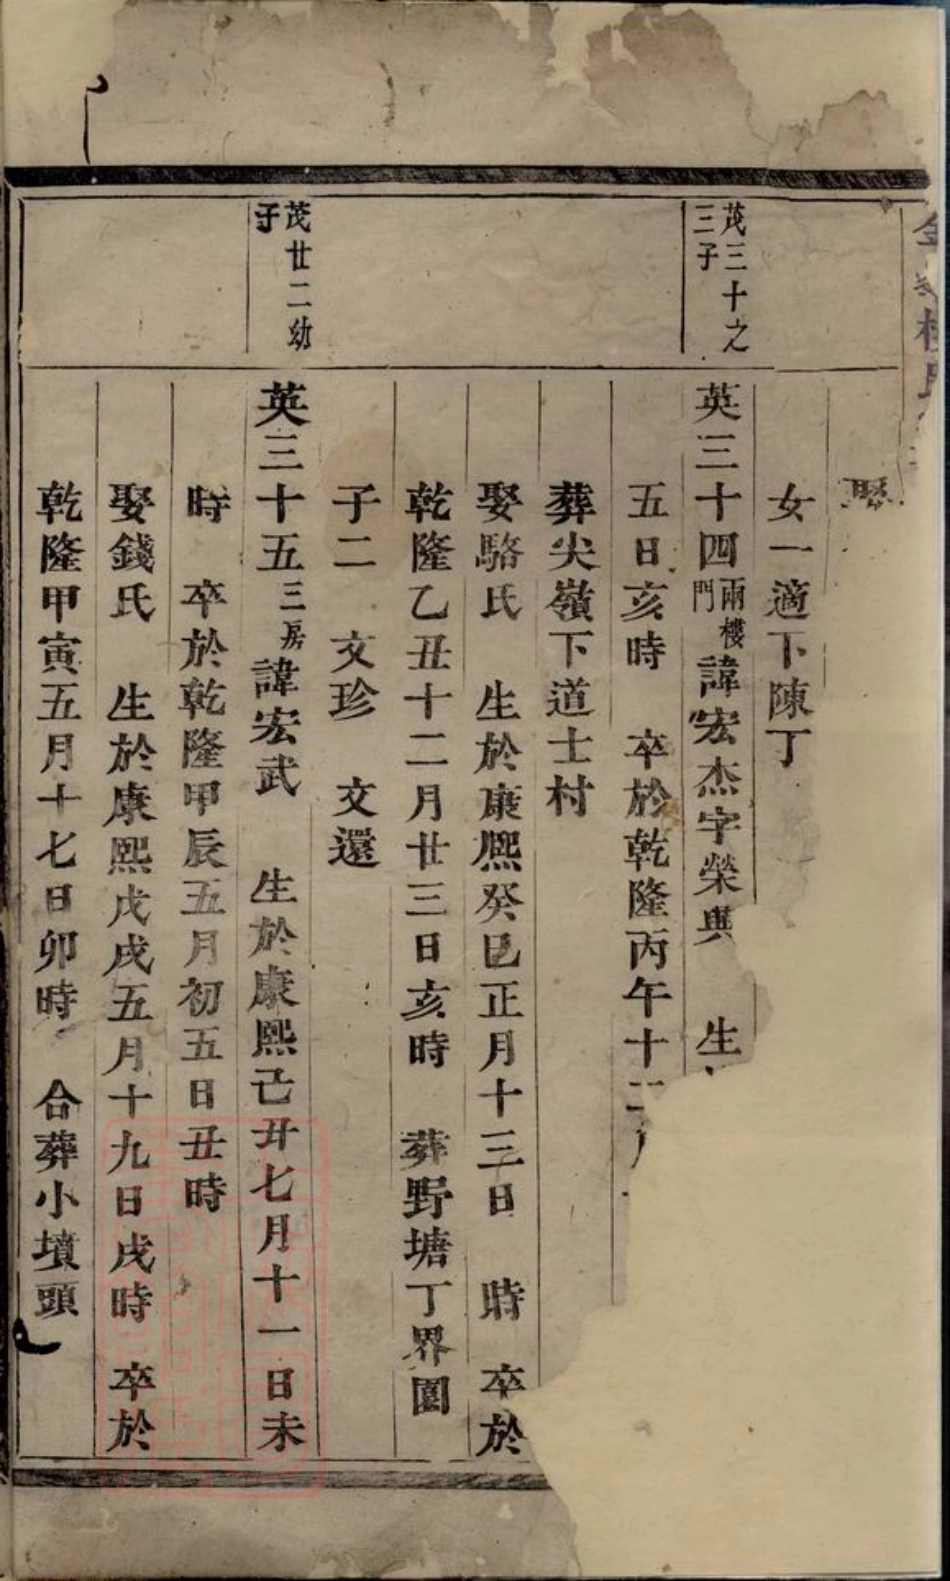 茂三十之
三子
茂廿二幼
子
女一適下陳丁
英三十四兩樓門諱宏杰字榮與 生
五日亥時 卒於乾隆丙午十二
葬尖嶺下道士村
娶駱氏 生於康熙癸巳正月十三日 時 卒於
乾隆乙丑十二月廿三日亥時 葬野塘丁界園
子二 文珍 文還
英三十五三房諱宏武 生於康熙己丑七月十一日未
時 卒於乾隆甲辰五月初五日丑時
娶錢氏 生於康熙戊戌五月十九日戌時 卒於
乾隆甲寅五月十七日卯時 合葬小墳頭